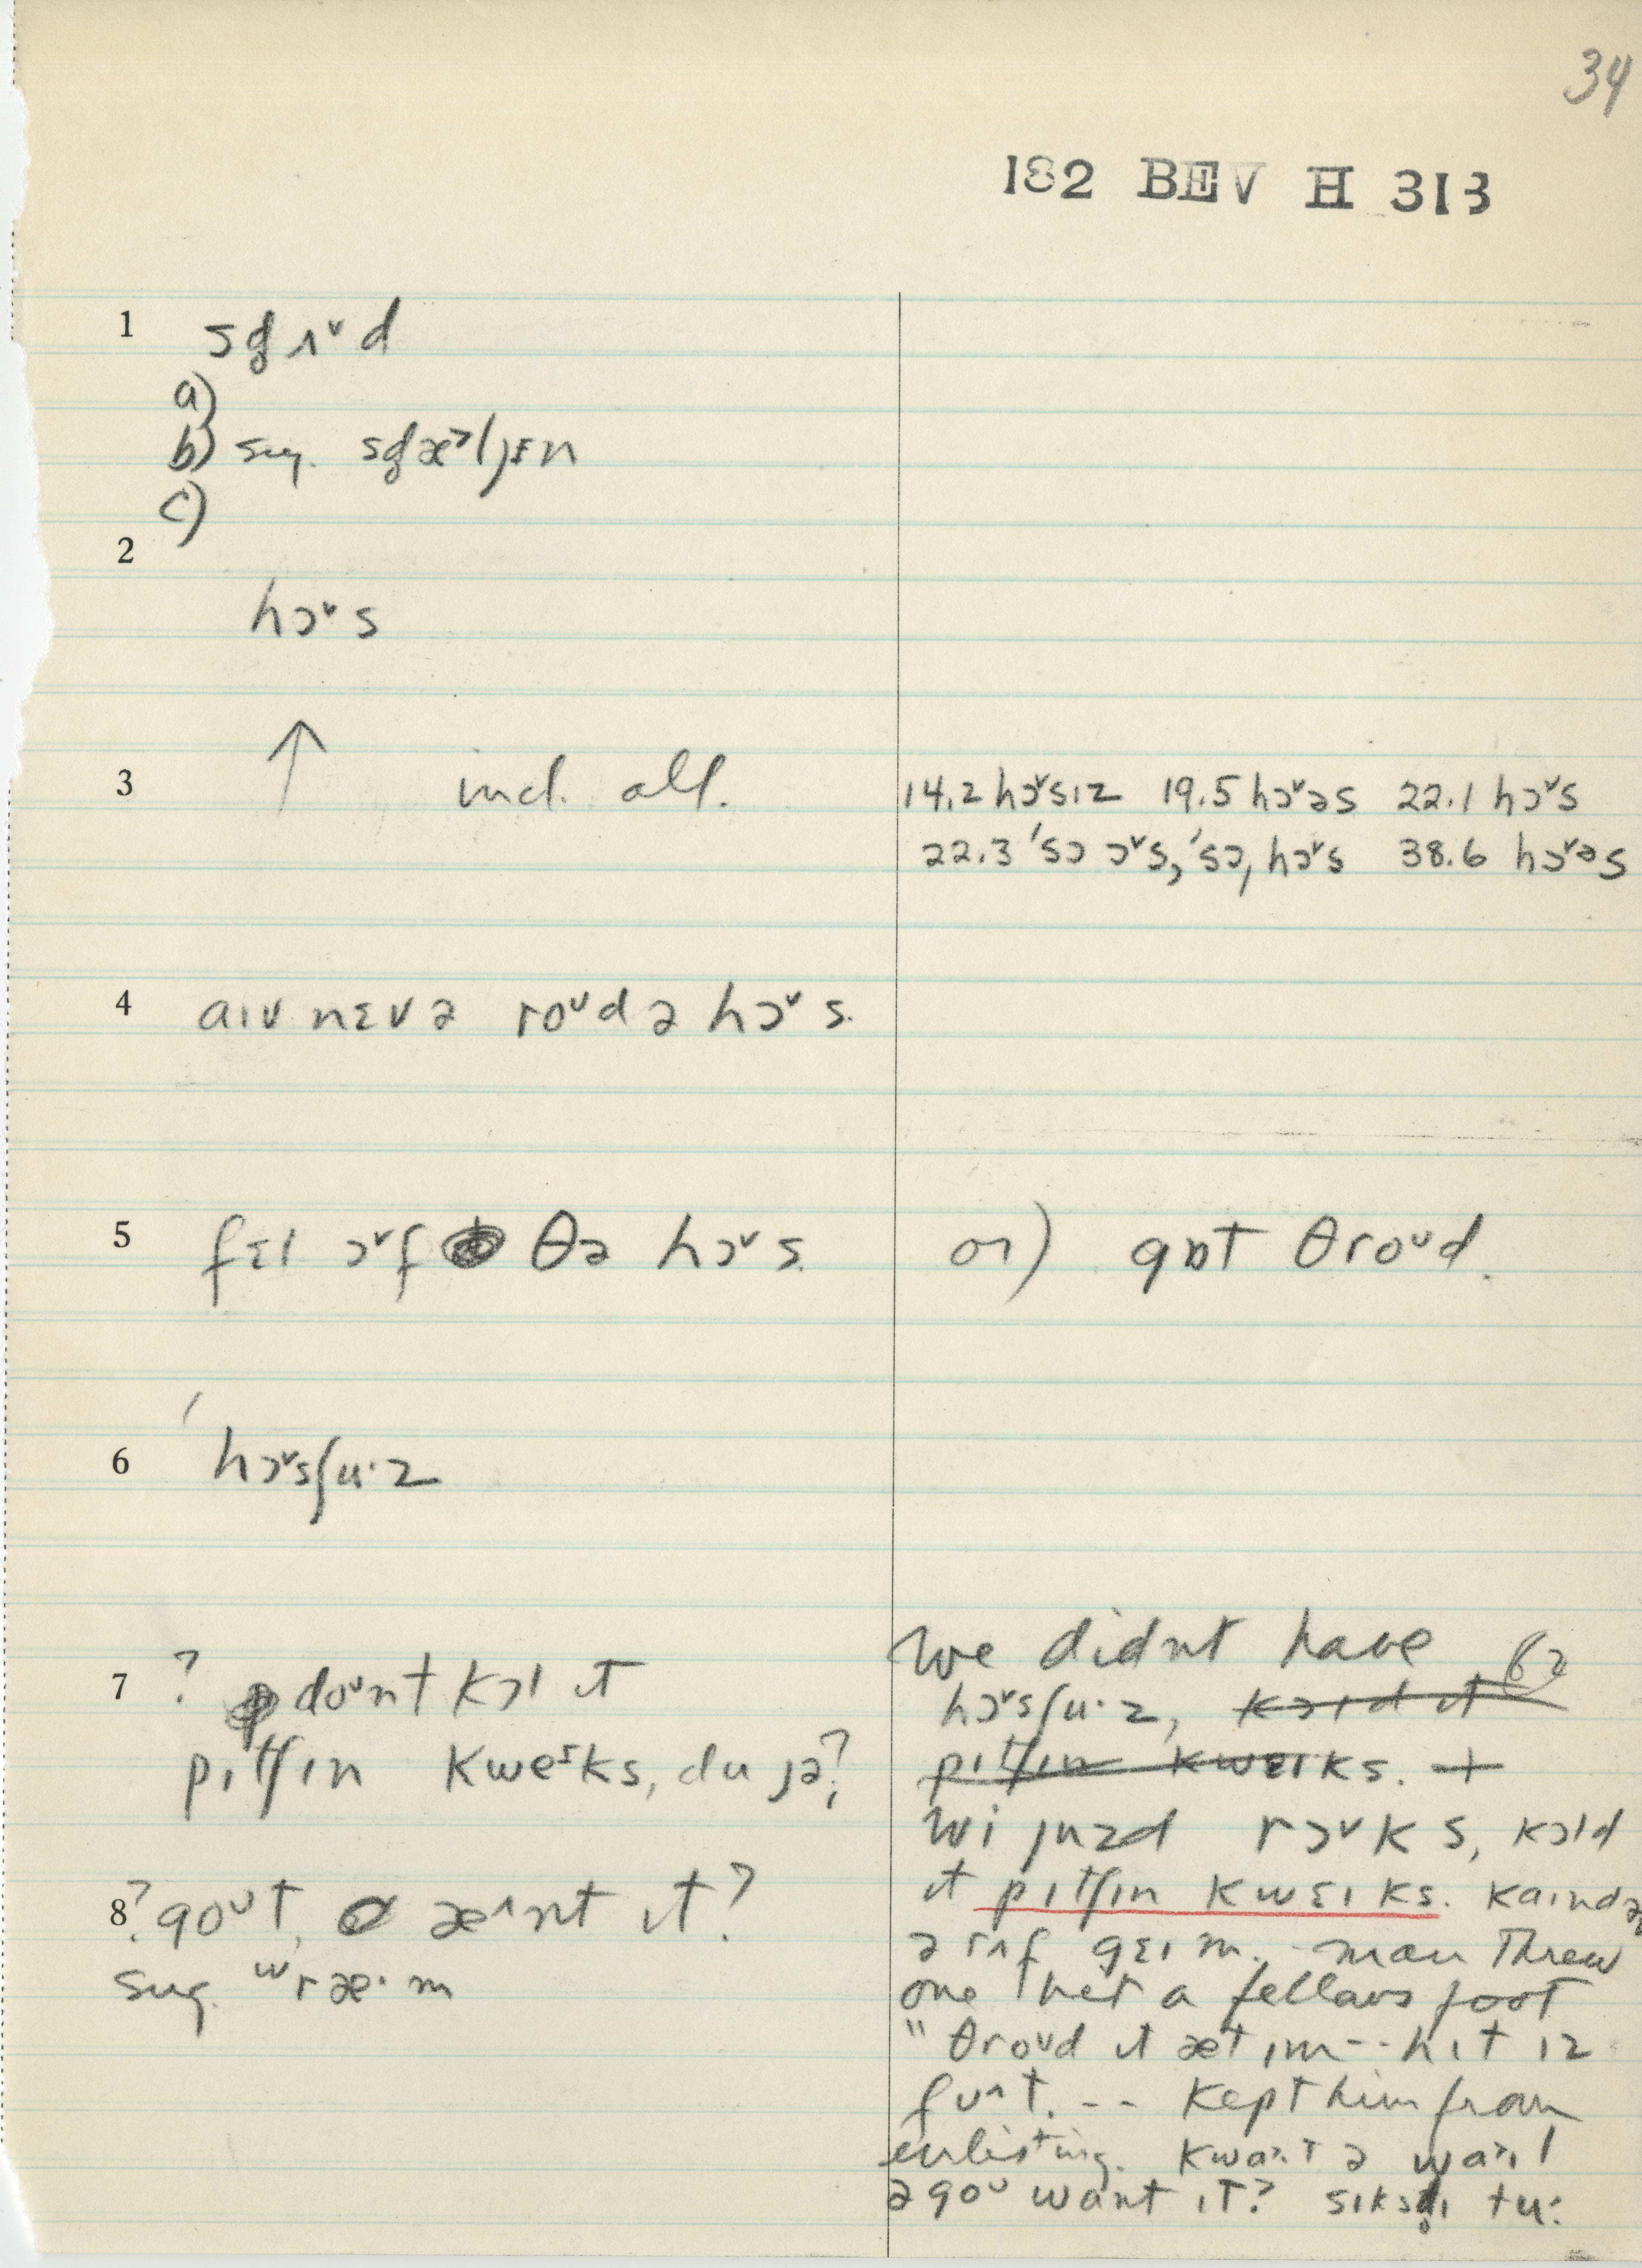 34
182 BEV H 313
1 sɡʌ˅d
a)
b) sug. sɡæ˃ljɛn
c)
2
hɔ˅s
3 ↑ incl. all.
14.2 hɔ˅sɪz 19.5 hɔ˅əs 22.1 hɔ˅s
22.3 ˈsɔ ɔ˅s, ˈsɔˌhɔ˅s 38.6 hɔ˅əs
4 aɪv nɛvə roᴜd ə hɔ˅s.
5 fɛl ɔ˅f θə hɔ˅s.
or) gɒt θroᴜd.
6 ˈhɔ˅sʃu·z
7 ? doᴜnt kɔl ɪt
pɪtʃɪn kweɪks, du jə?
We didnt have 62
hɔ˅sʃu·z, kɔld ɪt
pɪtʃɪn kwɛɪks. +
wi juzd rɔ˅ks, kɔld
ɪt pɪtʃɪn kwɛɪks. kaɪndə
ə rʌf gɛɪm. man threw
one het a fellows foot
" θroᴜd ɪt æt ɪm -- hɪt ɪz
fᴜ^t. -- kept him from
enlisting. kwa˃ɪt ə wa˃ɪl
əgoᴜ want ɪt? sɪksti tu:
8 ? goᴜt, æ^nt ɪt?
sug. ʷræ·m